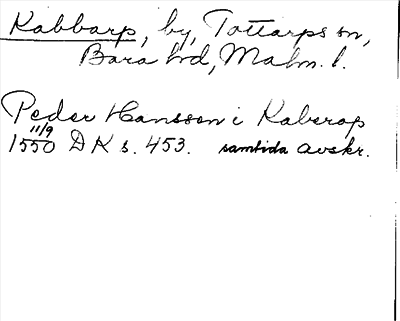 Kabbarp, by, Tottarps sn,
Bara hd, Malm. l.
Peder Hansson i Kaberop
11/9
1550 DK s. 453. samtida avskr.